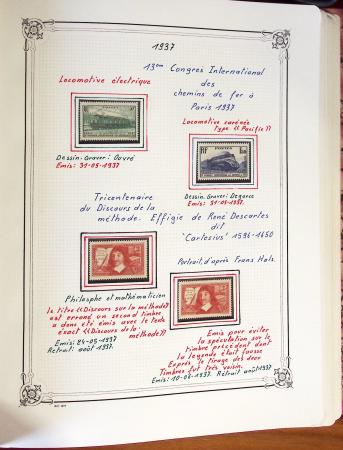 1937
13ème Congrès International
des
chemins de fer à
Paris 1937
Locomotive électrique
Locomotive carénée
type «Pacific»
POSTES
RF
Dessin. Graver: Ouvré
Emis: 31-05-1937
Dessin. Graver: Degorce
Emis: 31-05-1937.
Tricentenaire
du Discours de la
méthode. Effigie de René Descartes
dit
'Cartesius' 1596-1650
Portrait, d'après Frans Hals.
Philosphe et mathématicien
le titre «Discours sur la méthode»
est erroné un second timbre
a donc été émis avec le texte
exact «Discours de la
méthode»
Emis: 24-05-1937
Retrait: août 1937.
Emis pour éviter
la spéculation sur le
timbre précédent dont
la légende était fausse
Exprès, le tirage des deux
Timbres fut très voisin.
Emis: 10-06-1937. Retrait août 1937